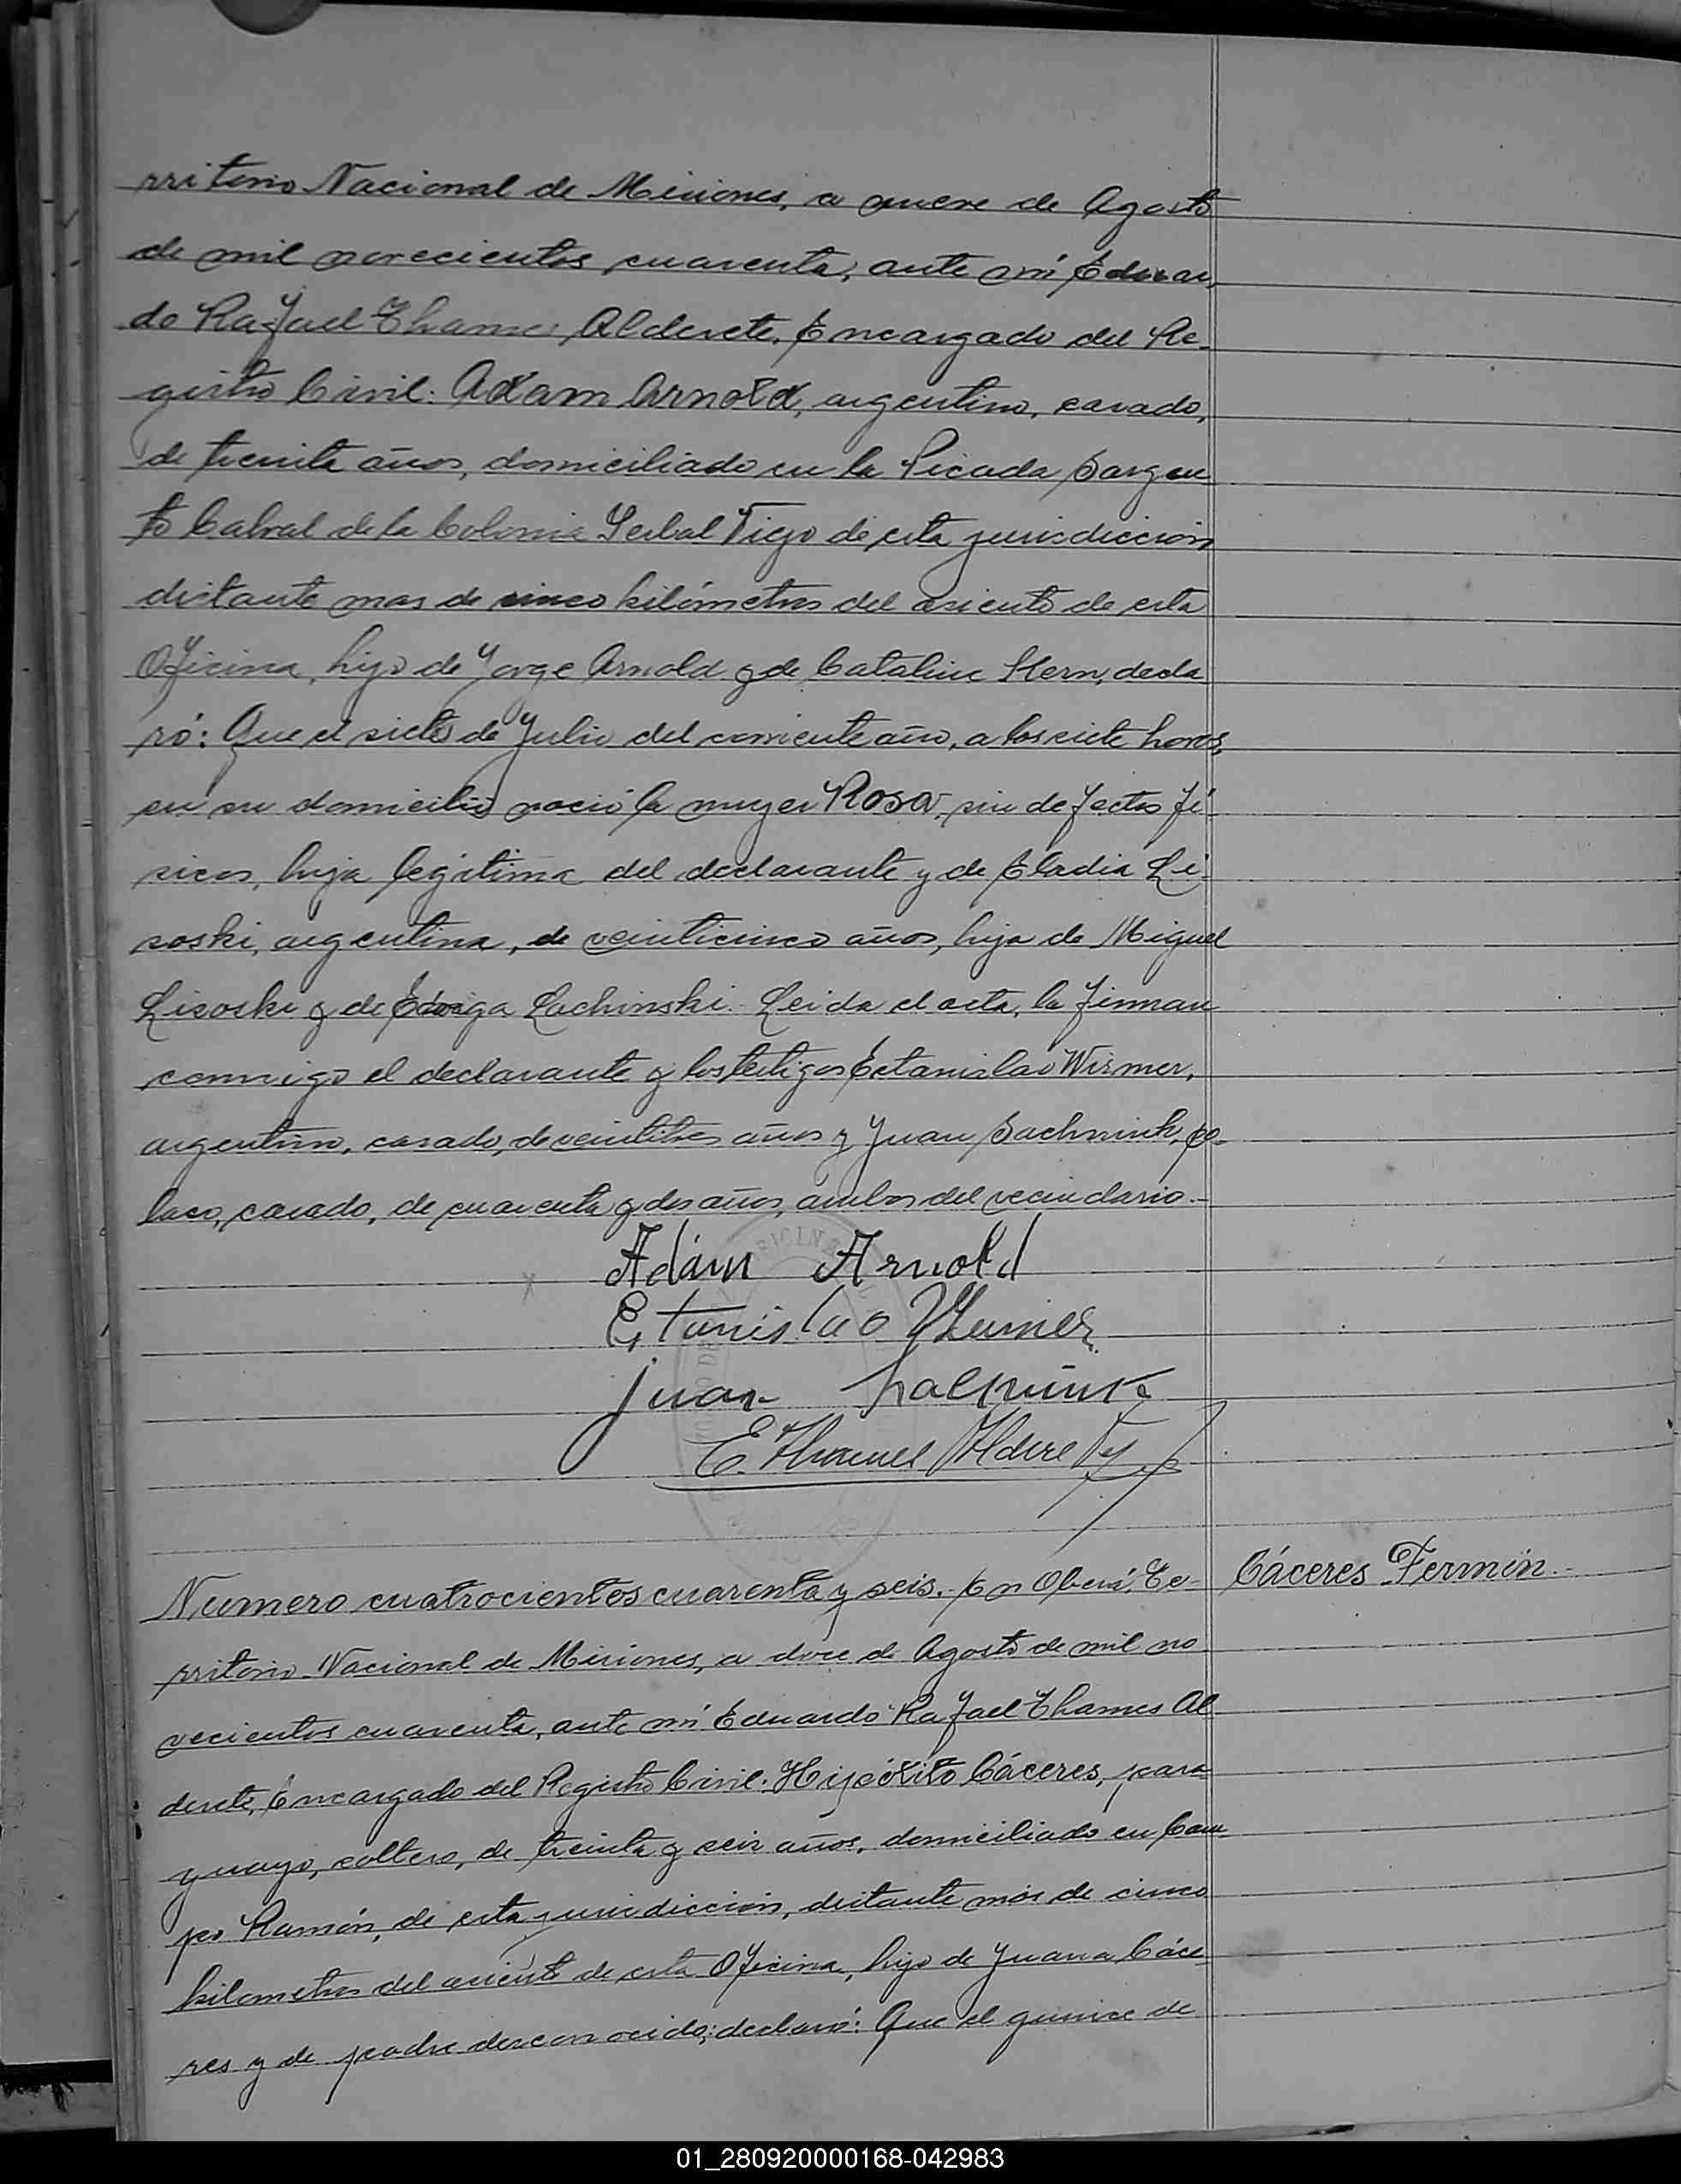 rritorio Nacional de Misiones, a nueve de Agosto
de mil novecientos cuarenta, ante mí Eduar
do Rafael Thames Alderete, Encargado del Re-
gistro Civil: Adam Arnold, argentino, casado,
de treinta años, domiciliado en la Picada Sargen
to Cabral de la Colonia Yerbal Viejo de esta jurisdicción
distante mas de cinco kilómetros del asiento de esta
Oficina, hijo de Jorge Arnold y de Catalina Stern, decla
ró: Que el siete de Julio del corriente año, a las siete horas,
en su domicilio nació la mujer Rosa, sin defectos fí-
sicos, hija legítima del declarante y de Eladia Li-
soski, argentina, de veinticinco años, hija de Miguel
Lisoski y de Edviga Lachinski. Leida el acta, la firman
conmigo el declarante y los testigos Estanislao Wirmer,
argentino, casado, de veintitres años y Juan Sachniuk, po-
laco, casado, de cuarenta y dos años, ambos del vecindario.-
Adám Arnold
Estanislao
Juan
E. Thames Alderete
Numero cuatrocientos cuarenta y seis.- En Oberá, Te-
Cáceres Fermín.-
rritorio Nacional de Misiones, a doce de Agosto de mil no
vecientos cuarenta, ante mí Eduardo Rafael Thames Al
derete, Encargado del Registro Civil: Hipólito Cáceres, para
guayo, soltero, de treinta y seis años, domiciliado en Cam
po Ramón, de esta jurisdicción, distante más de cinco
kilometros del asiento de esta Oficina, hijo de Juana Cáce
res y de padre desconocido; declaró: Que el quince de
01_280920000168-042983